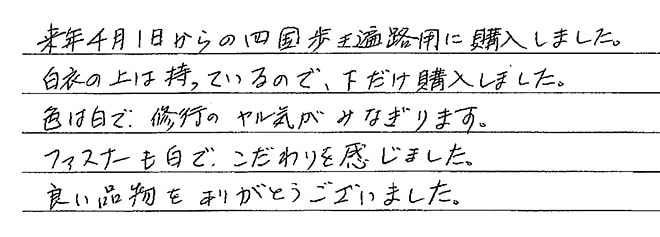 来年4月1日からの四国歩き遍路用に購入しました。
白衣の上は持っているので、下だけ購入しました。
色は白で、修行のヤル気がみなぎります。
ファスナーも白で、こだわりを感じました。
良い品物をありがとうございました。